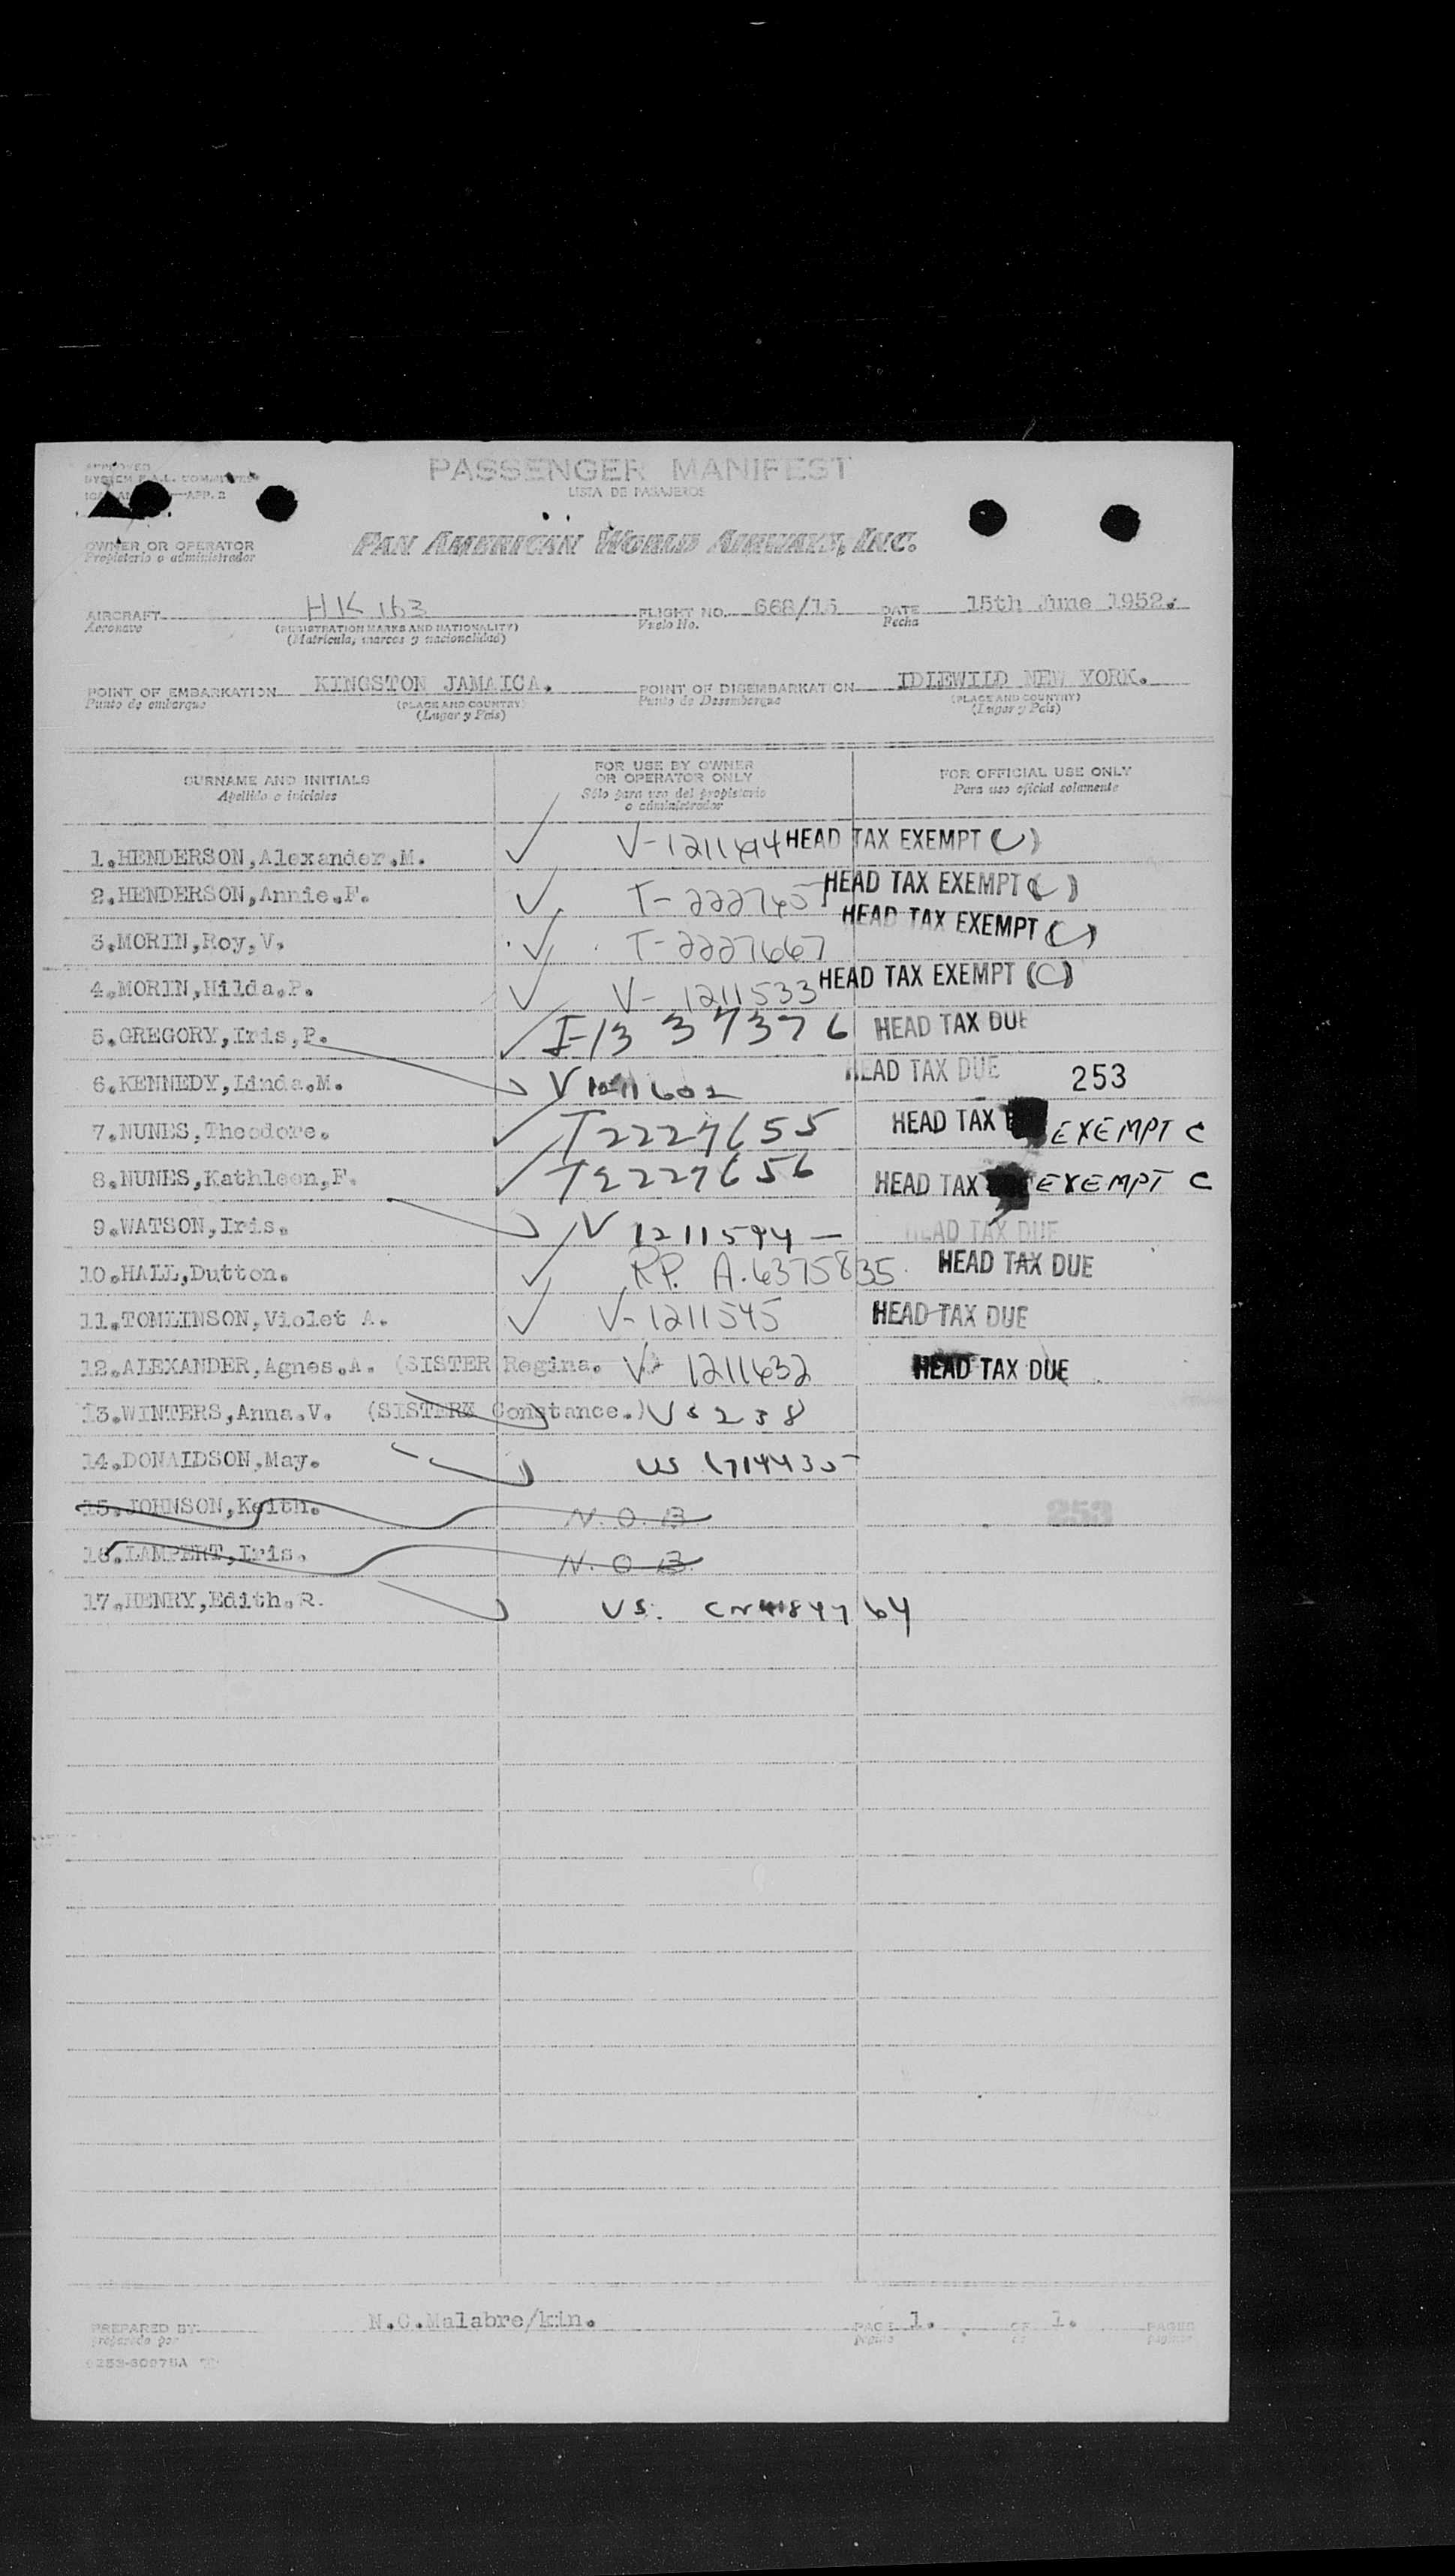 APPROVED
SYSTEM F.A.L. COMMITTEE
APP. 2
PASSENGER MANIFEST
LISTA DE PASAJEROS
OWNER OR OPERATOR
Propietario o administrador
PAN AMERICAN WORLD AIRWAYS, INC.
AIRCRAFT HK 163 FLIGHT NO. 668/15 DATE 15th June 1952.
Aeronave (REGISTRATION MARKS AND NATIONALITY) Vuelo No. Fecha
(Matricula, marcas y nacionalidad)
POINT OF EMBARKATION KINGSTON JAMAICA. POINT OF DISEMBARKATION IDLEWILD NEW YORK.
Punto de embarque (PLACE AND COUNTRY) Punto de Desembarque (PLACE AND COUNTRY)
(Lugar y Pais) (Lugar y Pais)
SURNAME AND INITIALS FOR USE BY OWNER OR OPERATOR ONLY FOR OFFICIAL USE ONLY
Apellido e iniciales Sólo para uso del propietario o administrador Para uso oficial solamente
1.HENDERSON,Alexander.M. V-1211494 HEAD TAX EXEMPT (C)
2.HENDERSON,Annie.F. T-2227657 HEAD TAX EXEMPT (C)
3.MORIN,Roy,V. T-2227667 HEAD TAX EXEMPT (C)
4.MORIN,Hilda.P. V-1211533 HEAD TAX EXEMPT (C)
5.GREGORY,Iris,P. I-1337376 HEAD TAX DUE
6.KENNEDY,Linda.M. V 1211602 HEAD TAX DUE 253
7.NUNES,Theodore. T2227655 HEAD TAX EXEMPT C
8.NUNES,Kathleen,F. T2227656 HEAD TAX EXEMPT C
9.WATSON,Iris. V 1211594 — HEAD TAX DUE
10.HALL,Dutton. RP. A.6375835. HEAD TAX DUE
11.TOMLINSON,Violet A. V-1211545 HEAD TAX DUE
12.ALEXANDER,Agnes.A. (SISTER Regina. V- 1211632 HEAD TAX DUE
13.WINTERS,Anna.V. (SISTERX Constance.) US 238
14.DONALDSON,May. US
15.JOHNSON,Keith. N.O.B. 253
16.LAMPERT,Iris. N.O.B.
17.HENRY,Edith.R. US.
PREPARED BY N.C.Malabre/kin. PAGE 1. OF 1. PAGES
preparado por